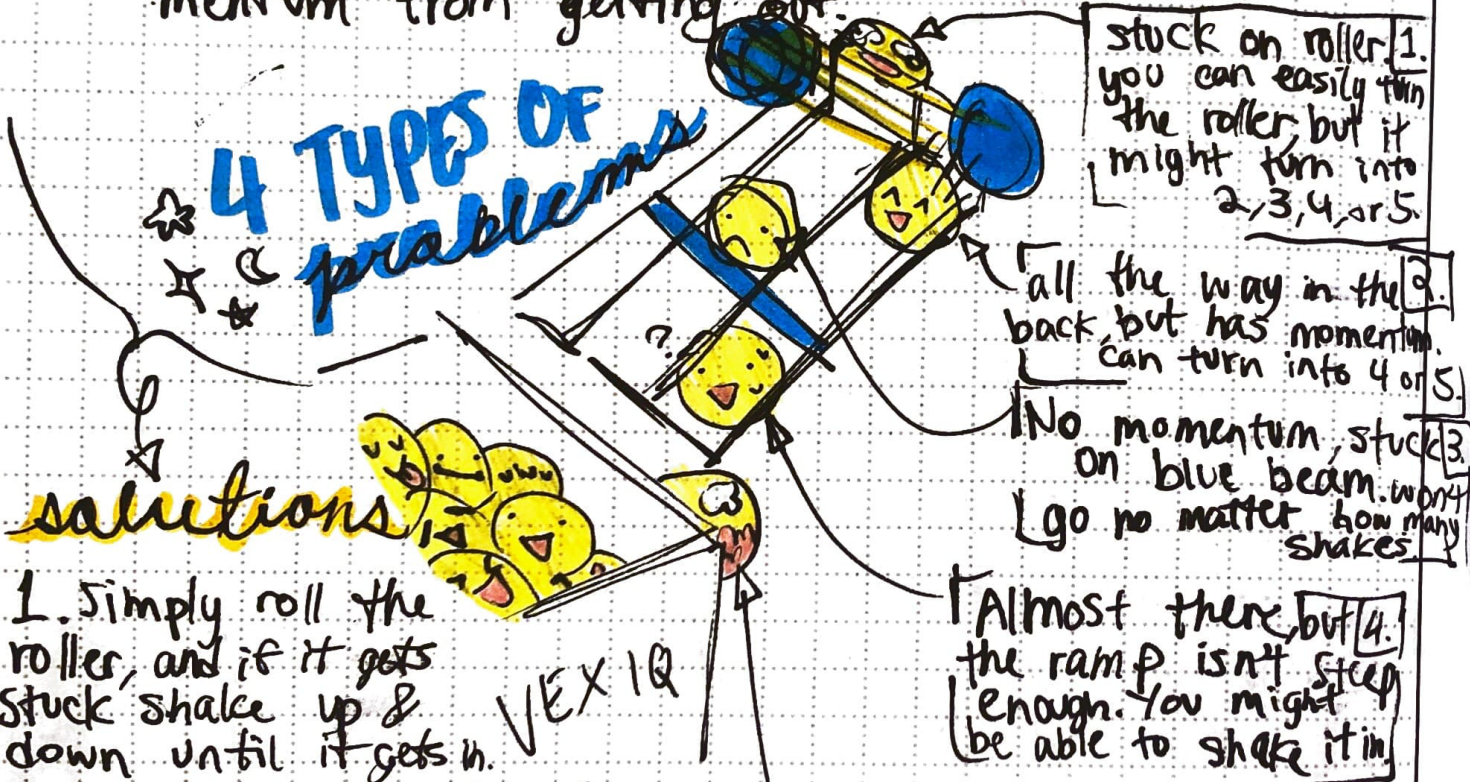 mentum from getting out.
4 TYPES OF
problems
stuck on roller. 1.
you can easily turn
the roller, but it
might turn into
2, 3, 4, or 5.
all the way in the 2.
back, but has momentum.
can turn into 4 or 5.
No momentum, stuck 3.
on blue beam. won't
go no matter how many
shakes.
?
uwu
Almost there, but 4.
the ramp isn't steep
enough. You might
be able to shake it in
solutions
1. Simply roll the
roller, and if it gets
stuck shake up &
down until it gets in.
VEX IQ